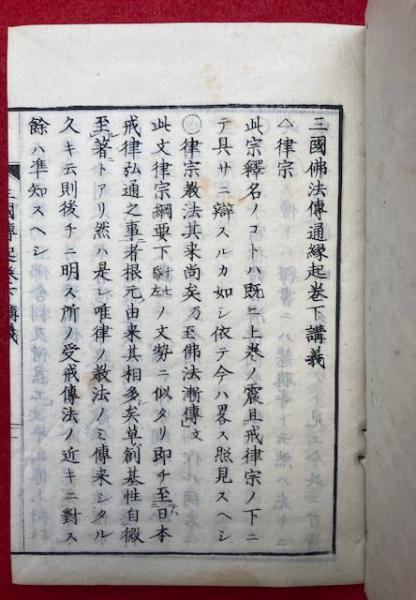 三國佛法傳通縁起巻下講義
律宗
此宗繹名ノコトハ既ニ上巻ノ震旦戒律宗ノ下ニ
テ具サニ辯スルカ如シ依テ今ハ畧ス照見スヘシ
律宗教法其来尚矣乃至佛法漸傳文
此文律宗綱要下ノ文勢ニ似タリ即チ至日本
戒律弘通之事者根元由来其相多矣草創基性自微
至著トアリ然ハ是レ唯律ノ教法ノミ傳来シタル
久キ云則後チニ明ス所ノ受戒傳法ノ近キニ對ス
餘ハ准知スヘシ